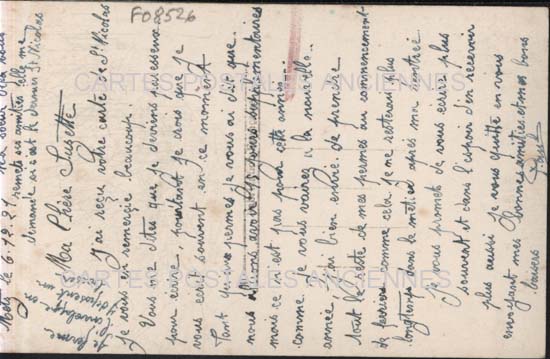 Metz le 6.12.21.
ma soeur
remets ses amitiés telle me
demande si c'est St Nicolas
Ma Chère Suzette
J'ai reçu votre carte de St Nicolas
je vous en remercie beaucoup.
Vous me dites que je deviens paresseux
pour écrire pourtant je crois que je
vous écris souvent en ce moment
Tant qu'aux permes je vous ai dit que
nous avons 45 jours supplémentaires
mais ce n'est pas pour cette année.
comme je vous verrez à la nouvelle
année j'ai bien envie de prendre
tout le reste de mes permes au commencement
de février comme cela je ne resterais plus
longtemps dans le métier après ma rentrée
Je vous promet de vous écrire plus
souvent et dans l'espoir d'en recevoir
plus aussi je vous quitte en vous
envoyant mes bonnes amitiés et mes bons
baisers
je ferme
l'enveloppe
F08526
CARTES POSTALES ANCIENNES
CARTES POSTALES ANCIENNES